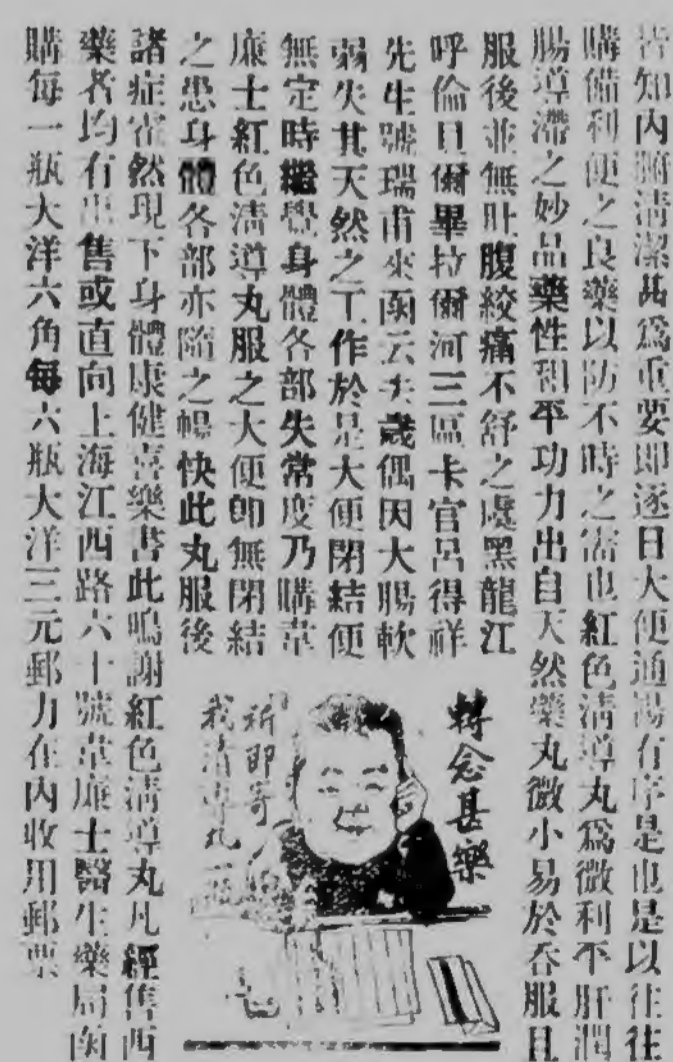 皆知內臟清潔甚爲重要即逐日大便通暢有序是也是以往往
購備利便之良藥以防不時之需也紅色淸導丸爲微利平肝潤
腸導滯之妙品藥性和平功力出自天然藥丸微小易於吞服且
服後並無肚腹絞痛不舒之處黑龍江
呼倫貝爾畢拉爾河三區卡官呂得祥
先生號瑞甫來函云去歲偶因大腸軟
弱失其天然之工作於是大便閉結便
無定時繼覺身體各部失常度乃購韋
廉士紅色淸導丸服之大便卽無閉結
之患身體各部亦隨之暢快此丸服後
諸症霍然現下身體康健喜樂書此鳴謝紅色淸導丸凡經售西
藥者均有出售或直向上海江西路六十號韋廉士醫生藥局函
購每一瓶大洋六角每六瓶大洋三元郵力在內收用郵票
轉念甚樂
祈即寄
我清導丸一瓶